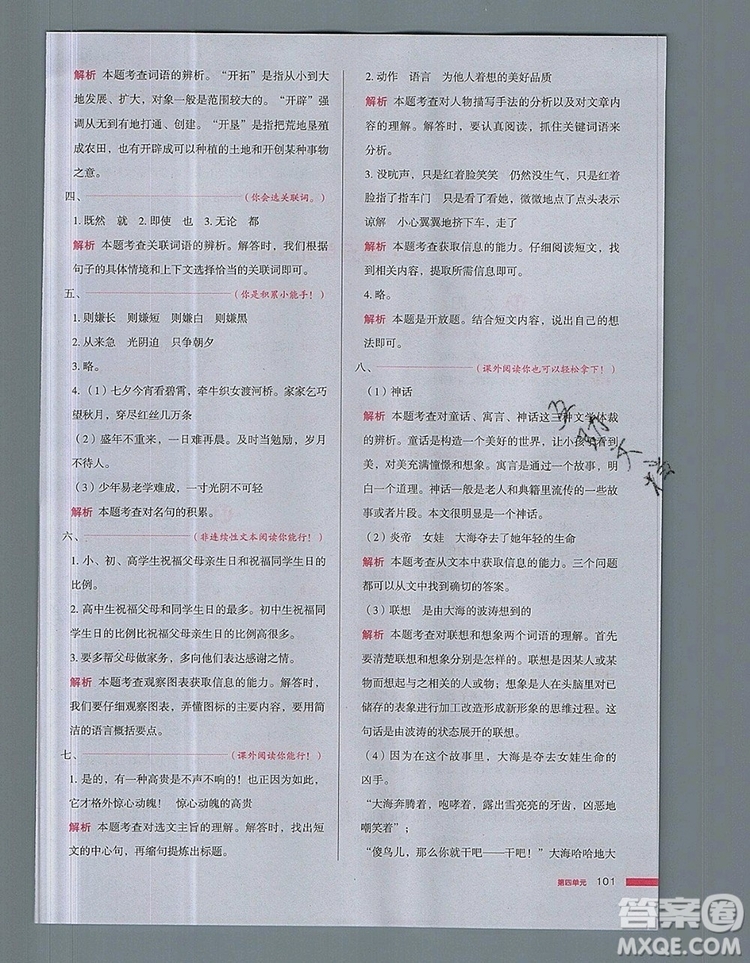 解析 本题考查词语的辨析。“开拓”是指从小到大
地发展、扩大，对象一般是范围较大的。“开辟”强
调从无到有地打通、创建。“开垦”是指把荒地垦殖
成农田，也有开辟成可以种植的土地和开创某种事物
之意。
四、（你会选关联词。）
1. 既然 就 2. 即使 也 3. 无论 都
解析 本题考查关联词语的辨析。解答时，我们根据
句子的具体情境和上下文选择恰当的关联词即可。
五、（你是积累小能手！）
1. 则嫌长 则嫌短 则嫌白 则嫌黑
2. 从来急 光阴迫 只争朝夕
3. 略。
4. （1）七夕今宵看碧霄，牵牛织女渡河桥。家家乞巧
望秋月，穿尽红丝几万条
（2）盛年不重来，一日难再晨。及时当勉励，岁月
不待人。
（3）少年易老学难成，一寸光阴不可轻
解析 本题考查对名句的积累。
六、（非连续性文本阅读你能行！）
1. 小、初、高学生祝福父母亲生日和同学生日的
比例。
2. 高中生祝福父母和同学生日的最多。初中生祝福同
学生日的比例比祝福父母亲生日的比例高。
3. 要多帮父母做家务，多向他们表达感谢之情。
解析 本题考查观察图表获取信息的能力。解答时，
我们要仔细观察图表，弄懂图标的主要内容，要用简
洁的语言概括要点。
七、（课外阅读你能行！）
1. 是的，有一种高贵是不声不响的！也正因为如此，
它才格外惊心动魄！ 惊心动魄的高贵
解析 本题考查对选文主旨的理解。解答时，找出短
文的中心句，再缩句提炼出标题。
2. 动作 语言 为他人着想的美好品质
解析 本题考查对人物描写手法的分析以及对文章内
容的理解。解答时，要认真阅读，抓住关键词语来
分析。
3. 没吭声，只是红着脸笑笑 仍然没生气，只是红着
脸指了指车门 只是看了看她，微微地点了点头表示
谅解 小心翼翼地挤下车，走了
解析 本题考查获取信息的能力。仔细阅读短文，找
到相关内容，提取所需的信息即可。
4. 略。
解析 本题是开放题。结合短文内容，说出自己的想
法即可。
八、（课外阅读你也可以轻松拿下！）
（1）神话
解析 本题考查对童话、寓言、神话这三种文学体裁
的辨析。童话是构造一个美好的世界，让小孩子看到
美，对美充满憧憬和想象。寓言是通过一个故事，明
白一个道理。神话一般是老人和典籍里流传的一些故
事或者片段。本文很明显是一个神话。
（2）炎帝 女娃 大海夺去了她年轻的生命
解析 本题考查从文本中获取信息的能力。三个问题
都可以从文中找到确切的答案。
（3）联想 是由大海的波涛想到的
解析 本题考查对联想和想象两个词语的理解。首先
要清楚联想和想象分别是怎样的。联想是因某人或某
物而想起与之相关的人或物；想象是人在头脑里对已
储存的表象进行加工改造形成新形象的思维过程。这
句话是由波涛的状态展开的联想。
（4）因为在这个故事里，大海是夺去女娃生命的
凶手。
“大海奔腾着，咆哮着，露出雪亮亮的牙齿，凶恶地
嘲笑着”；
“傻鸟儿，那么你就干吧——干吧！”大海哈哈地大
第四单元 101
答案圈
MXQE.COM